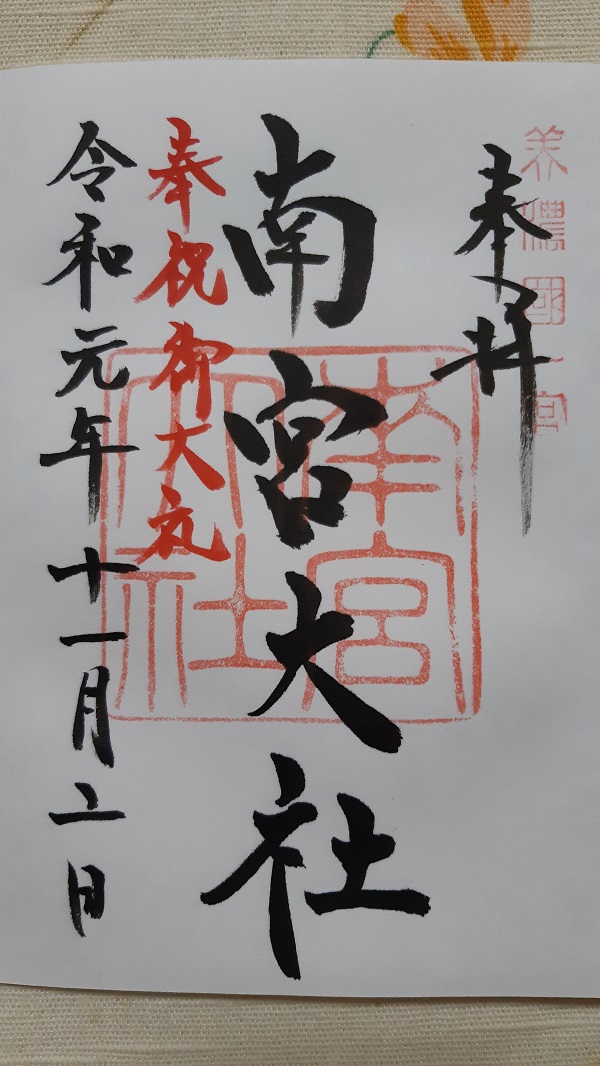 美濃國一宮
奉拝
南宮大社
南宮大社
奉祝御大礼
令和元年十一月二日